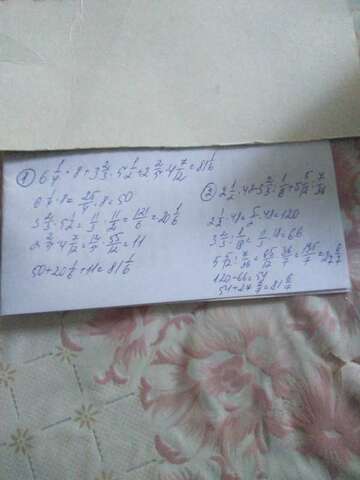 ① 6 1/4 · 8 + 3 2/3 · 5 1/2 + 2 2/5 · 4 7/12 = 81 1/6
6 1/4 · 8 = 25/4 · 8 = 50
3 2/3 · 5 1/2 = 11/3 · 11/2 = 121/6 = 20 1/6
2 2/5 · 4 7/12 = 12/5 · 55/12 = 11
50 + 20 1/6 + 11 = 81 1/6
② 2 1/2 · 48 - 3 2/3 : 1/18 + 5 5/12 : 7/36
2 1/2 · 48 = 5/2 · 48 = 120
3 2/3 : 1/18 = 11/3 · 18 = 66
5 5/12 : 7/36 = 65/12 · 36/7 = 195/7 = 27 6/7
120 - 66 = 54
54 + 27 6/7 = 81 6/7